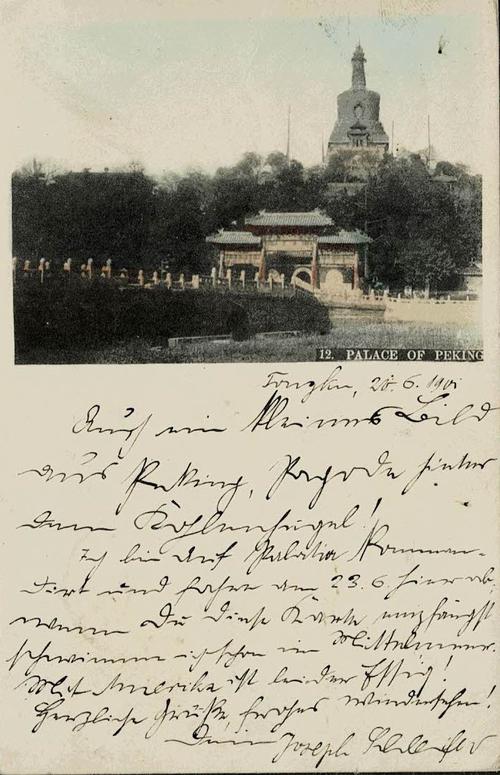 12. PALACE OF PEKING
Tongku, 20. 6. 1901
Auch ein kleines Bild
aus Peking, Pagode hinter
dem Kohlenhügel!
Ich bin auf Palatia komman-
dirt und fahre am 23. 6. hier ab,
wenn Du diese Karte empfängst
schwimme ich schon im Mittelmeer.
Mit Amerika ist leider Essig!
Herzliche Grüße, frohes Wiedersehen!
Dein Joseph